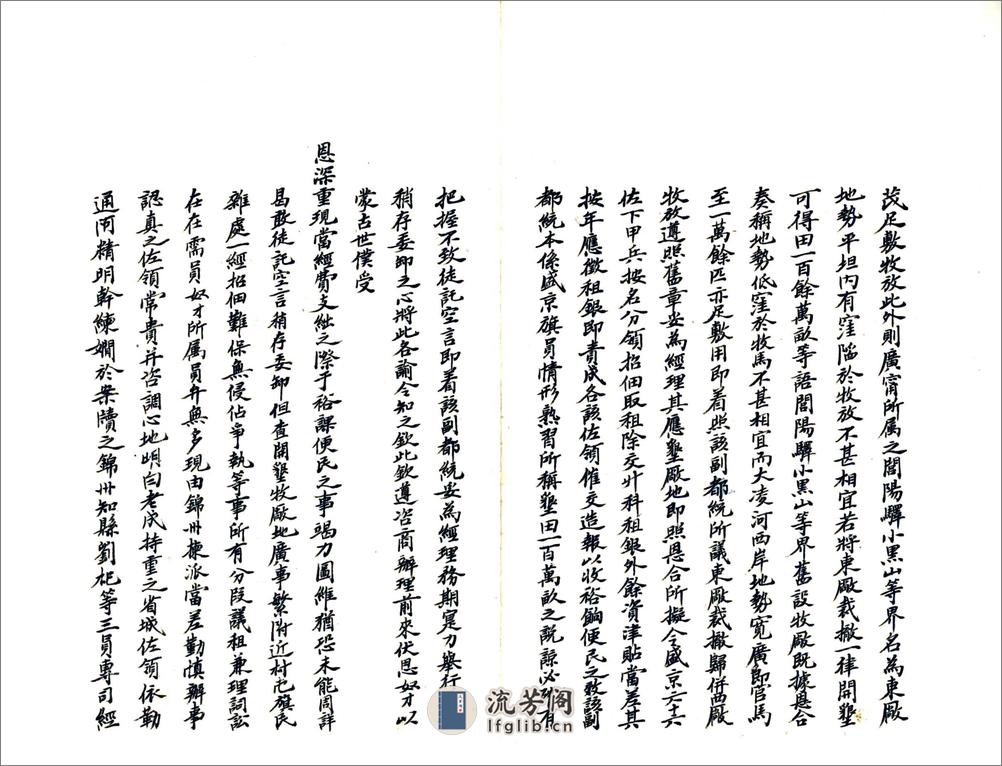 茂足敷牧放此外則廣甯所属之閭陽驛小黑山等界名為東厰
地勢平坦内有窪陷於牧放不甚相宜若將東厰裁撤一律開墾
可得田一百餘萬畝等語閭陽驛小黑山等界舊設牧厰既據恩合
奏稱地勢低窪於牧馬不甚相宜而大凌河西岸地勢寬廣即官馬
至一萬餘匹亦足敷用即着照該副都統所議東厰裁撤歸併西厰
牧放遵照舊章妥為經理其應墾厰地即照恩合所擬令盛京六十六
佐下甲兵按名分領招佃取租除交升科租銀外餘資津貼當差其
按年應徵租銀即責成各該佐領催交造報以收裕餉便民之效該副
都統本係盛京旗員情形熟習所稱墾田一百萬畝之說諒必所有
把握不致徒託空言即着該副都統妥為經理務期寔力舉行
稍存委卸之心將此各諭令知之欽此欽遵咨商辦理前來伏思奴才以
蒙古世僕受
恩深重現當經費支絀之際于裕課便民之事竭力圖維猶恐未能周詳
曷敢徒託空言稍存委卸但查開墾牧厰地廣事繁附近村屯旗民
雜處一經招佃難保無侵佔爭執等事所有分段議租兼理詞訟
在在需員奴才所属員弁無多現由錦州揀派當差勤慎辦事
認真之佐領常貴并咨調心地明白老成持重之省城佐領依勒
通阿精明幹練嫻於案牘之錦州知縣劉杷等三員專司經
流芳阁
lfglib.cn